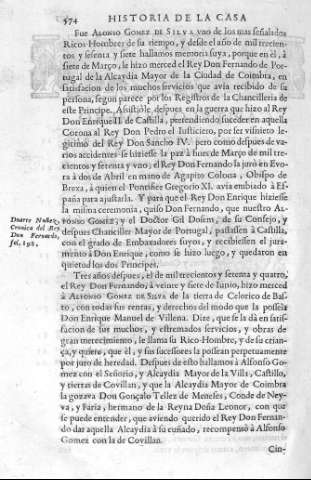 574 HISTORIA DE LA CASA
Fue ALONSO GOMEZ DE SILVA vno de los mas señalados
Ricos-Hombres de su tiempo, y desde el año de mil trecien-
tos y setenta y siete hallamos memoria suya, porque en èl, à
siete de Março, le hizo merced el Rey Don Fernando de Por-
tugal de la Alcaydia Mayor de la Ciudad de Coimbra, en
satisfacion de los muchos servicios que avia recibido de su
persona, segun parece por los Registros de la Chancilleria de
este Principe. Assistiòle despues en la guerra que hizo al Rey
Don Enrique II. de Castilla, pretendiendo suceder en aquella
Corona al Rey Don Pedro el Iusticiero, por ser visnieto le-
gitimo del Rey Don Sancho IV. pero como despues de va-
rios accidentes se hiziesse la paz à fines de Março de mil tre-
cientos y setenta y vno; el Rey Don Fernando la jurò en Evo-
ra à dos de Abril en mano de Agapito Colona, Obispo de
Brexa, à quien el Pontifice Gregorio XI. avia embiado à Es-
paña para ajustarla. Y para que el Rey Don Enrique hiziesse
la misma ceremonia, quiso Don Fernando, que nuestro AL-
FONSO GOMEZ, y el Doctor Gil Dosem, de su Consejo, y
despues Chanciller Mayor de Portugal, passassen à Castilla,
con el grado de Embaxadores suyos, y recibiessen el jura-
mento à Don Enrique, como se hizo luego, y quedaron en
quietud los dos Principes.
Duarte Nuñez,
Cronica del Rey
Don Fernando,
fol. 198.
Tres años despues, el de mil trecientos y setenta y quatro,
el Rey Don Fernando, à veinte y siete de Iunio, hizo merced
à ALFONSO GOMEZ DE SILVA de la tierra de Celorico de Bas-
to, con todas sus rentas, y derechos del modo que la posseìa
Don Enrique Manuel de Villena. Dize, que se la dà en satis-
facion de sus muchos, y estremados servicios, y obras de
gran merecimiento, le llama su Rico-Hombre, y de su crian-
ça, y quiere, que èl, y sus sucessores la possean perpetuamente
por juro de heredad. Despues de esto hallamos à Alfonso Go-
mez con el Señorio, y Alcaydia Mayor de la Villa, Castillo,
y tierras de Covillan, y que la Alcaydia Mayor de Coimbra
la gozava Don Gonçalo Tellez de Meneses, Conde de Ney-
va, y Faria, hermano de la Reyna Doña Leonor, con que
se puede entender, que aviendo querido el Rey Don Fernan-
do dar aquella Alcaydia à su cuñado, recompensò à Alfonso
Gomez con la de Covillan.
Cin-